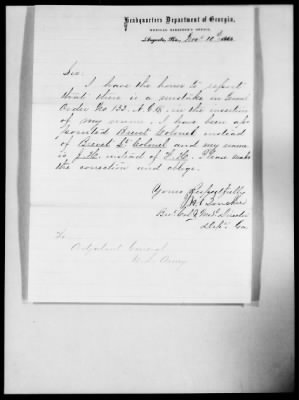 Headquarters Department of Georgia,
MEDICAL DIRECTOR'S OFFICE,
Augusta, Ga., Nov. 10th 1865
Sir.
I have the honor to report
that there is a mistake in Genl
Order No 152. A.G.O. in the insertion
of my name. I have been ap-
pointed Brevet Colonel instead
of Brevet Lt Colonel and my name
is instead of Please make
the correction and oblige.
Yours Respectfully
Bvt Col & Med. Director
Dept. Ga.
To
Adjutant General
U.S. Army